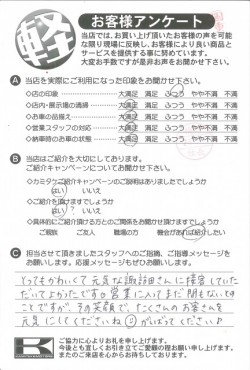 軽
お客様アンケート
当店では、お買い上げ頂いたお客様の声を可能
な限り現場に反映し、お客様により良い商品と
サービスを提供する事に努めています。
大変お手数ですが是非お声をお聞かせ下さい。
A 当店を実際にご利用になった印象をお聞かせ下さい。
◇店の印象 大満足 満足 ふつう やや不満 不満
◇店内・展示場の清掃 大満足 満足 ふつう やや不満 不満
◇お車の品揃え 大満足 満足 ふつう やや不満 不満
◇営業スタッフの対応 大満足 満足 ふつう やや不満 不満
◇納車時のお車の状態 大満足 満足 ふつう やや不満 不満
B 当店はご紹介を大切にしております。
ご紹介キャンペーンについてお聞かせ下さい。
◇カミタケご紹介キャンペーンのご説明はありましたでしょうか
はい いいえ
◇ご紹介はして頂けますでしょうか
はい いいえ
◇具体的にご紹介頂ける方とのご関係をお聞かせ頂けますでしょうか
ご親族 ご友人 職場の方 機会があれば紹介したい
C 担当させて頂きましたスタッフへのご指摘、ご指導メッセージを
お願いします。応援メッセージもぜひお願いします。
とってもかわいくて元気な諏訪田さんに接客していた
だいてよかったです。営業に入ってまだ間もないという
ことですが、その笑顔で、たくさんのお客さんを
元気にしてくださいね がんばってください♪
K
ご協力に心よりお礼を申し上げます。
今後とも宜しくお引き立てご愛顧の程お願い申し上げます。
またのご来店を心からお待ちしております。